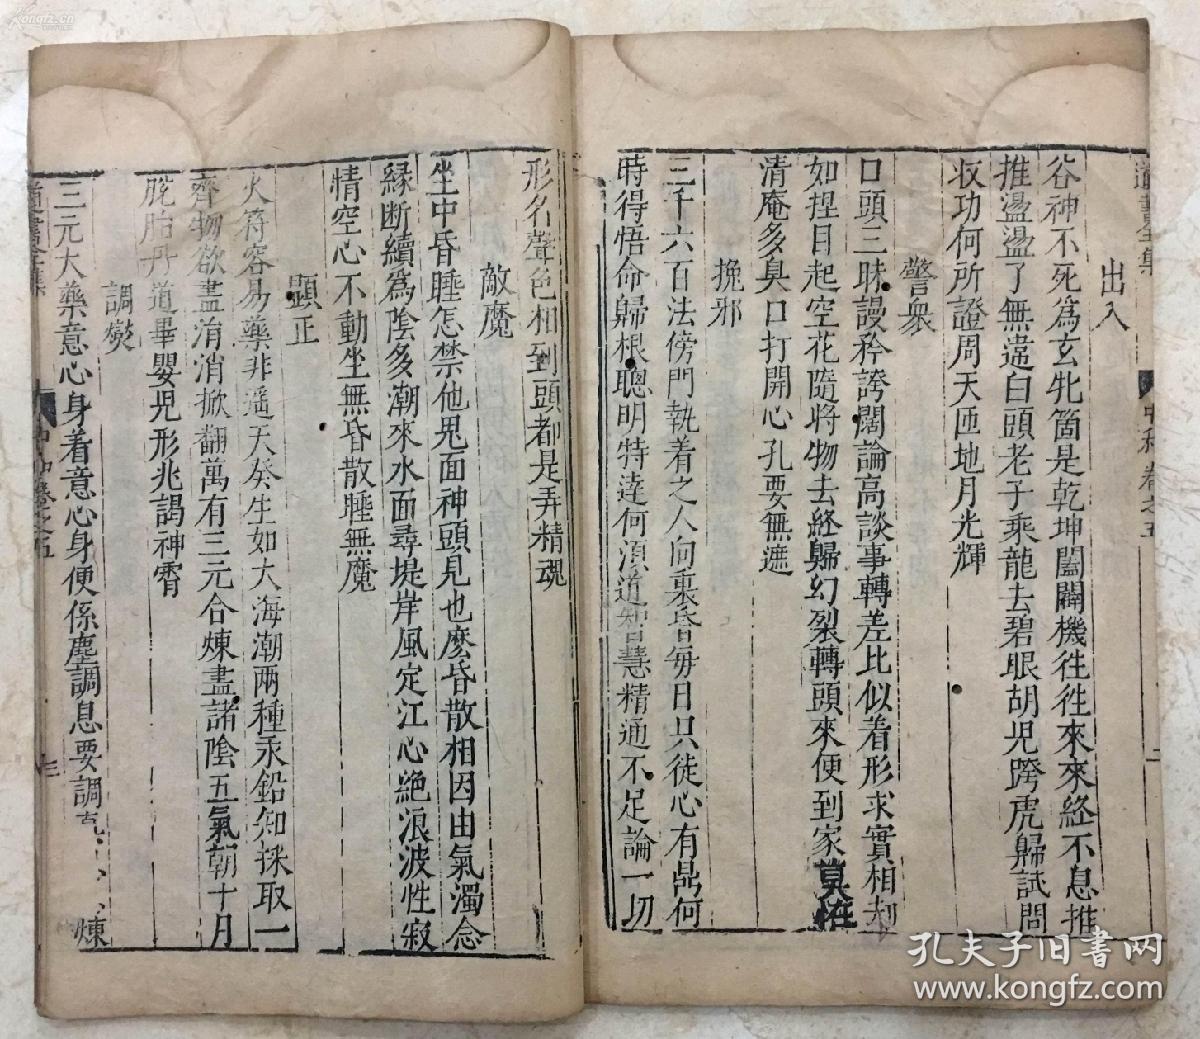 道書全集
中和卷之五
二
出入
谷神不死爲玄牝箇是乾坤闔闢機往往來來終不息推
推盪盪了無違白頭老子乘龍去碧眼胡児跨虎歸試問
収功何所證周天匝地月光輝
警衆
口頭三昧謾矜誇闊論高談事轉差比似着形求實相却
如捏目起空花隨將物去終歸幻裂轉頭來便到家莫怪
清庵多臭口打開心孔要無遮
挽邪
三千六百法傍門執着之人向裏昏每日只徒心有鼎何
時得悟命歸根聰明特達何湏道智慧精通不足論一切
形名聲色相到頭都是弄精魂
敵魔
坐中昏睡怎禁他鬼面神頭見也麽昏散相因由氣濁念
緣断續爲陰多潮來水面尋堤岸風定江心絶浪波性寂
情空心不動坐無昏散睡無魔
顕正
火符容易藥非遥天癸生如大海潮兩種汞鉛知採取一
齊物欲盡消掀翻萬有三元合煉盡諸陰五氣朝十月
脱胎丹道畢嬰児形兆謁神霄
調燮
三元大藥意心身着意心身便係塵調息要調 煉
道書全集
中和卷之五
三
孔夫子旧书网
www.kongfz.com
kongfz.cn